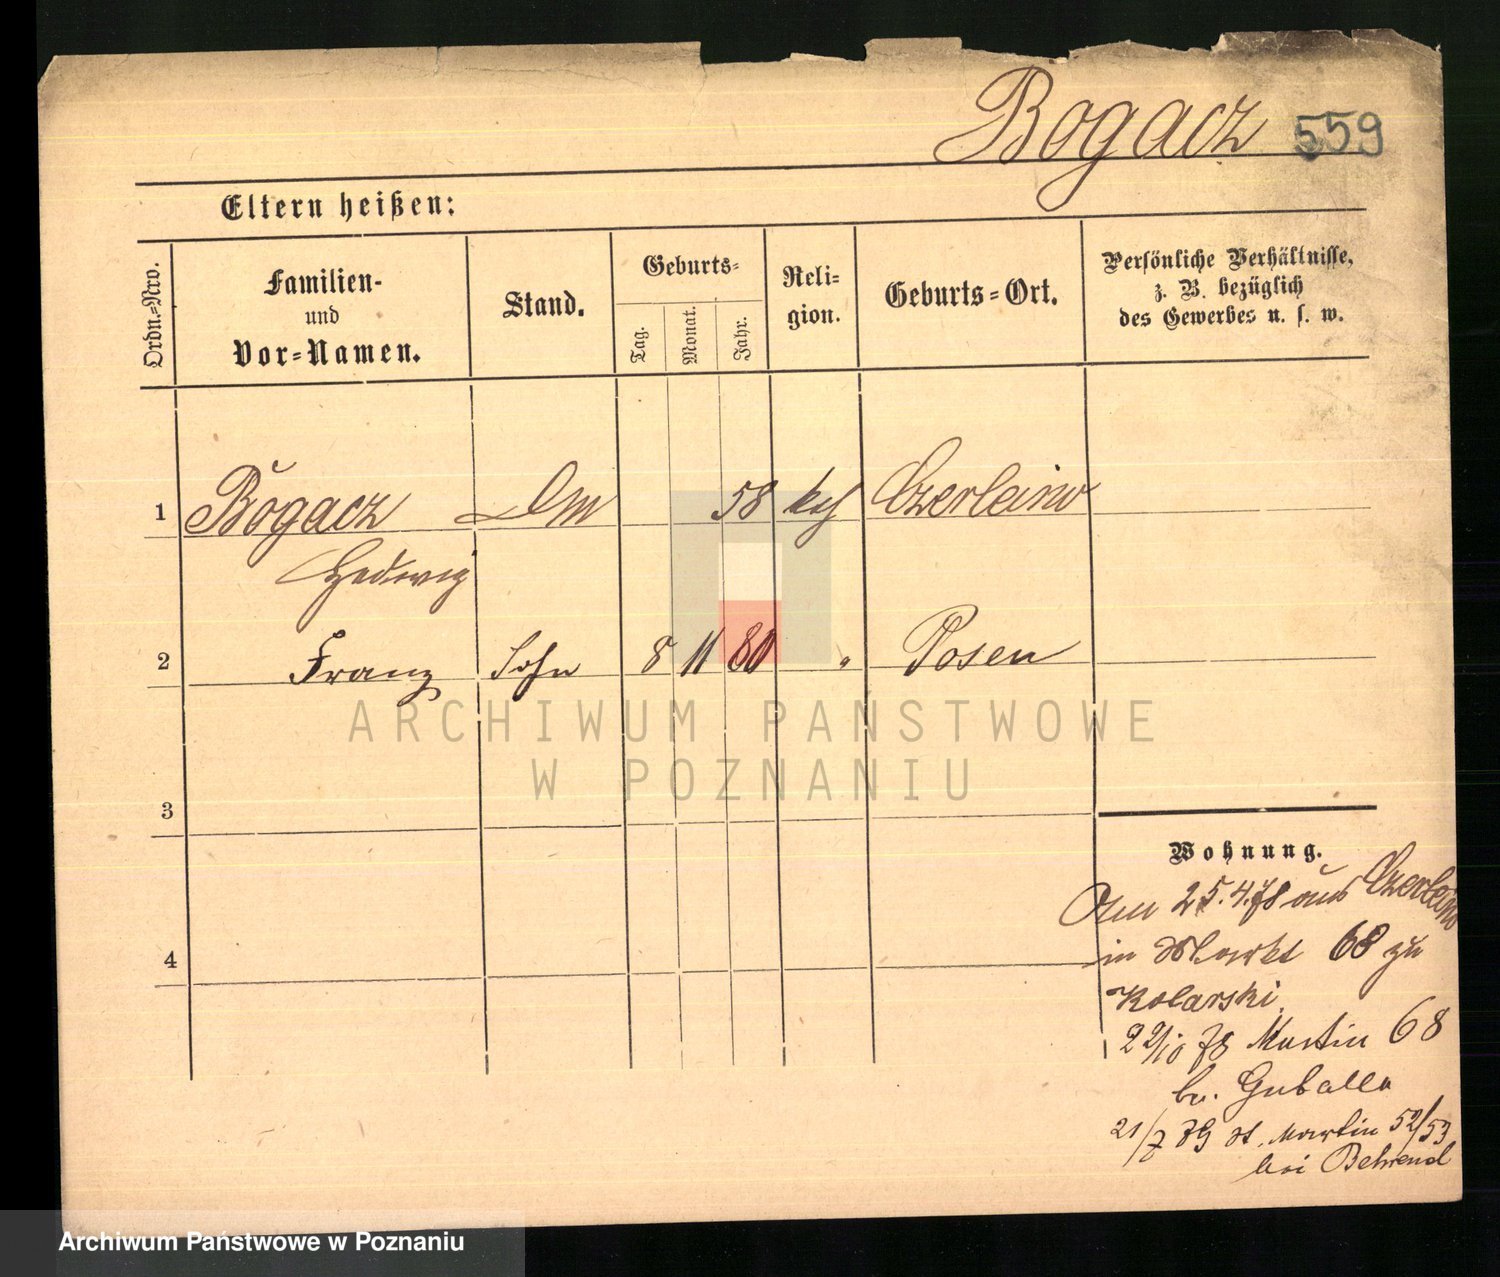 Bogacz 559
Eltern heißen:
Ordn.-Nro.
Familien-
und
Vor=Namen.
Stand.
Geburts=
Tag.
Monat.
Jahr.
Reli=
gion.
Geburts=Ort.
Persönliche Verhältnisse,
z. B. bezüglich
des Gewerbes u. s. w.
1 Bogacz 58 kth Czerleino
Hedwig
2 Franz Sohn 8 11 80 " Posen
ARCHIWUM PAŃSTWOWE
W POZNANIU
3
4
Wohnung.
25.4.78 aus Czerleino
in Markt 68 zu
Kolarski
22/10 78 Martin 68
bei Guballa
21/7 79 St. Martin 52/53
bei Behrend
Archiwum Państwowe w Poznaniu